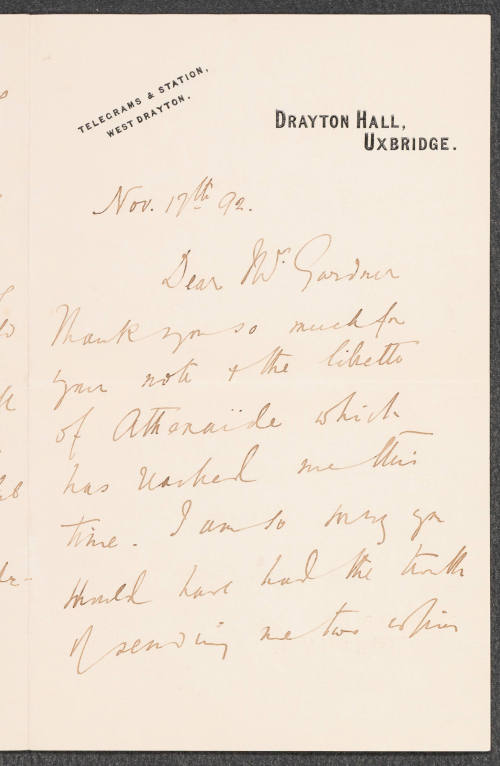 TELEGRAMS & STATION,
WEST DRAYTON.
DRAYTON HALL,
UXBRIDGE.
Nov. 17th 92.
Dear Mrs. Gardner
Thank you so much for
your note & the libretto
of Athenaïde which
has reached me this
time. I am so sorry you
should have had the trouble
of sending me two copies